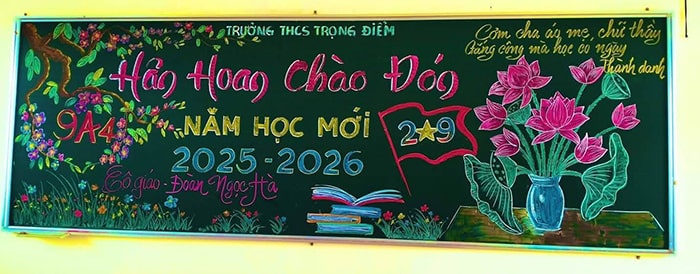 TRƯỜNG THCS TRỌNG ĐIỂM
Hân Hoan Chào Đón
NĂM HỌC MỚI
2025-2026
9A4
Cô giáo - Đoàn Ngọc Hà
2★9
Cơm cha áo mẹ, chữ thầy
Gắng công mà học có ngày
thành danh